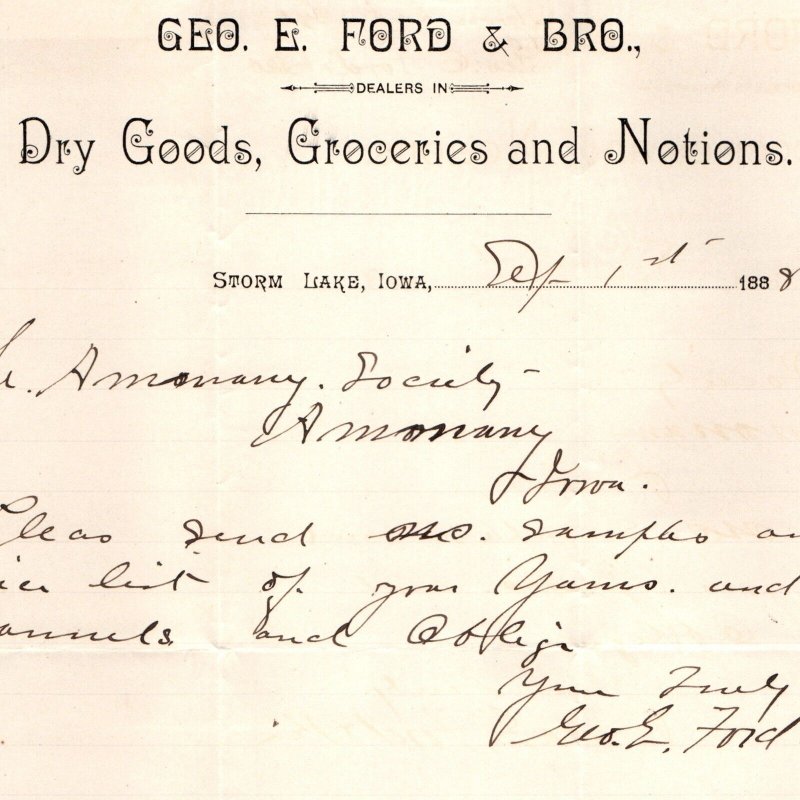 GEO. E. FORD & BRO.,
DEALERS IN
Dry Goods, Groceries and Notions.
STORM LAKE, IOWA, Sep 1st 1888
Amonany. Society
Amonany
Iowa.
Pleas send me. samples an
list of. your Yarns. and
annels and Oblige
Your Truly
Geo. E. Ford